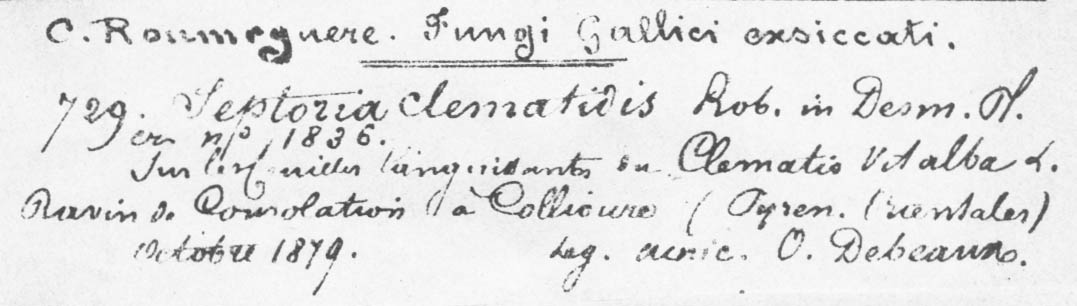 C. Roumeguere. Fungi Gallici exsiccati.
729. Septoria Clematidis Rob. in Desm. Pl.
cr. no 1836.
Sur les feuilles languissants du Clematis Vitalba L.
Ravin de Consolation à Collioure (Pyren. Orientales)
Octobre 1879. Leg. amic. O. Debeaux.